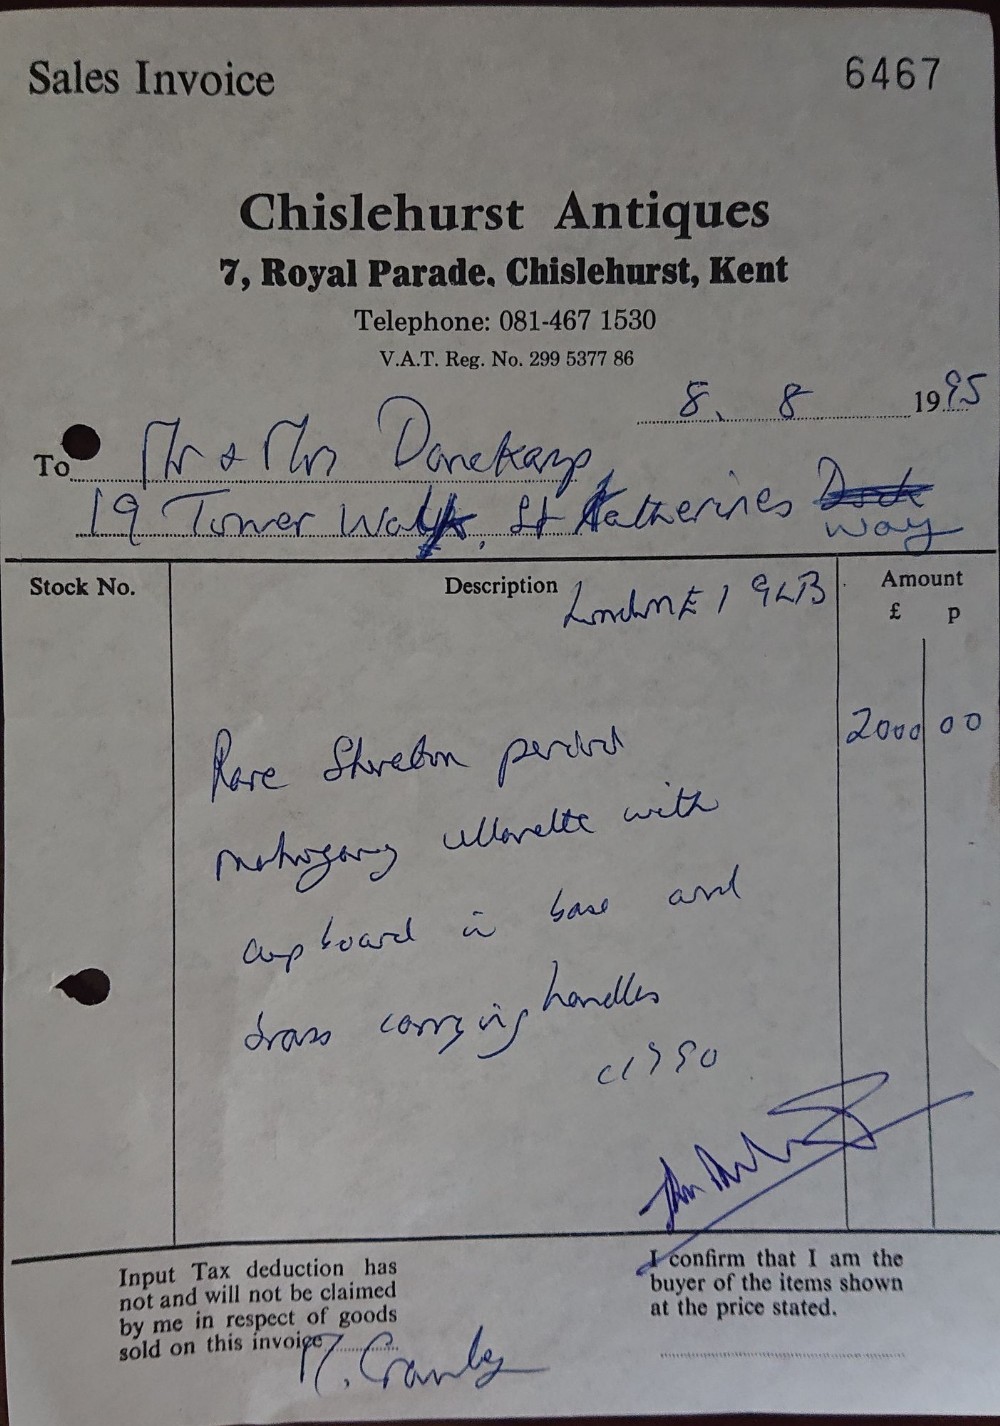 Sales Invoice 6467
Chislehurst Antiques
7, Royal Parade, Chislehurst, Kent
Telephone: 081-467 1530
V.A.T. Reg. No. 299 5377 86
8. 8 1995
To Mr & Mrs Donekamp
19 Tower Walk, St Katherines
Way
Stock No. Description Amount
London E1 9LB £ p
Rare Sheraton period 2000 00
mahogany cellarette with
cupboard in base and
brass carrying handles
c1790
Input Tax deduction has
not and will not be claimed
by me in respect of goods
sold on this invoice
I confirm that I am the
buyer of the items shown
at the price stated.